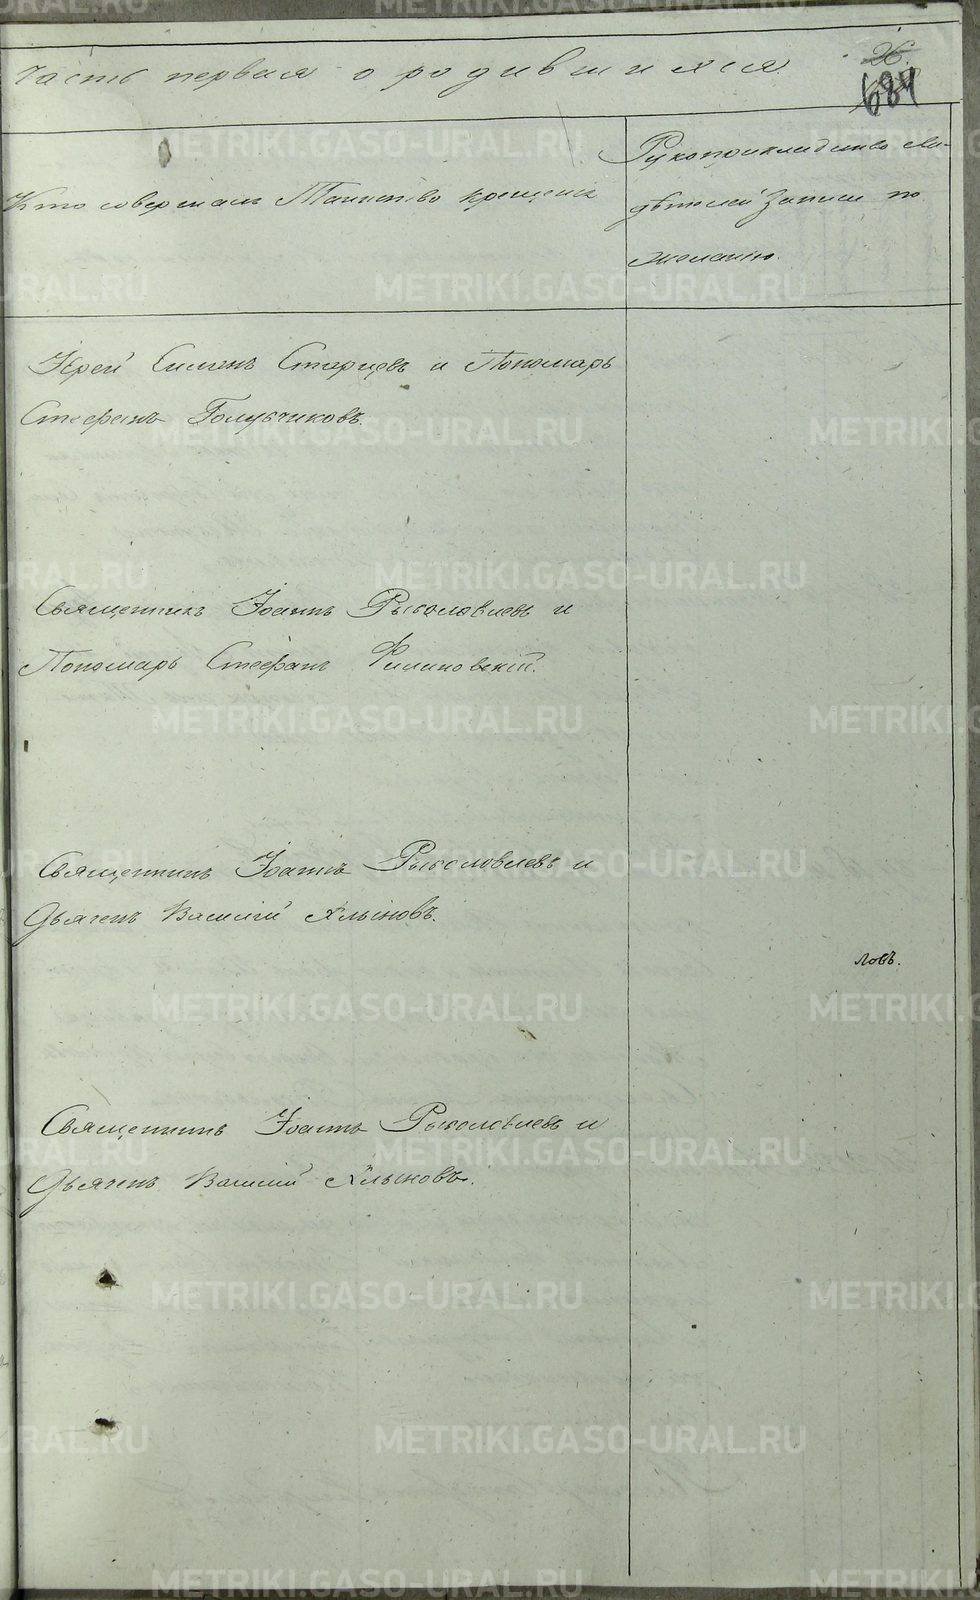 Часть первая о родившихся.
26.
684
Кто совершалъ Таинство крещенія
Рукоприкладство сви-
дѣтелей записи по
желанію.
Іерей Симеонъ Старцевъ и Пономарь
Стефанъ Голубчиковъ.
Священникъ Іоаннъ Рыболовлевъ и
Пономарь Стефанъ Филиновскій.
Священникъ Іоаннъ Рыболовлевъ и
Дьячекъ Василій Хлыновъ.
ловъ.
Священникъ Іоаннъ Рыболовлевъ и
Дьячекъ Василій Хлыновъ.
METRIKI.GASO-URAL.RU